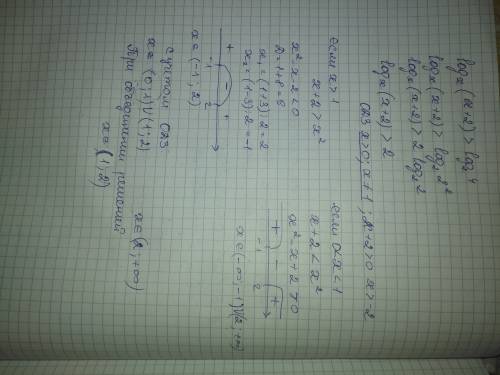 log₂(x+2) > log₂4
log₂(x+2) > log₂2²
logₓ(x+2) > 2 log₂2
logₓ(x+2) > 2
ОДЗ x>0; x≠1; x+2>0 x>-2
если x>1
x+2 > x²
x²-x-2<0
D=1+8=9
x₁=(1+3):2=2
x₂=(1-3):2=-1
+ -1 - 2 +
x∈(-1; 2)
если 0<x<1
x+2 < x²
x²-x+2>0
+ -1 - 2 +
x∈(-∞;-1)∪(2;+∞)
с учетом ОДЗ
x∈(0;1)∪(1;2)
x∈(2;+∞)
При объединении решений
x∈(1;2)